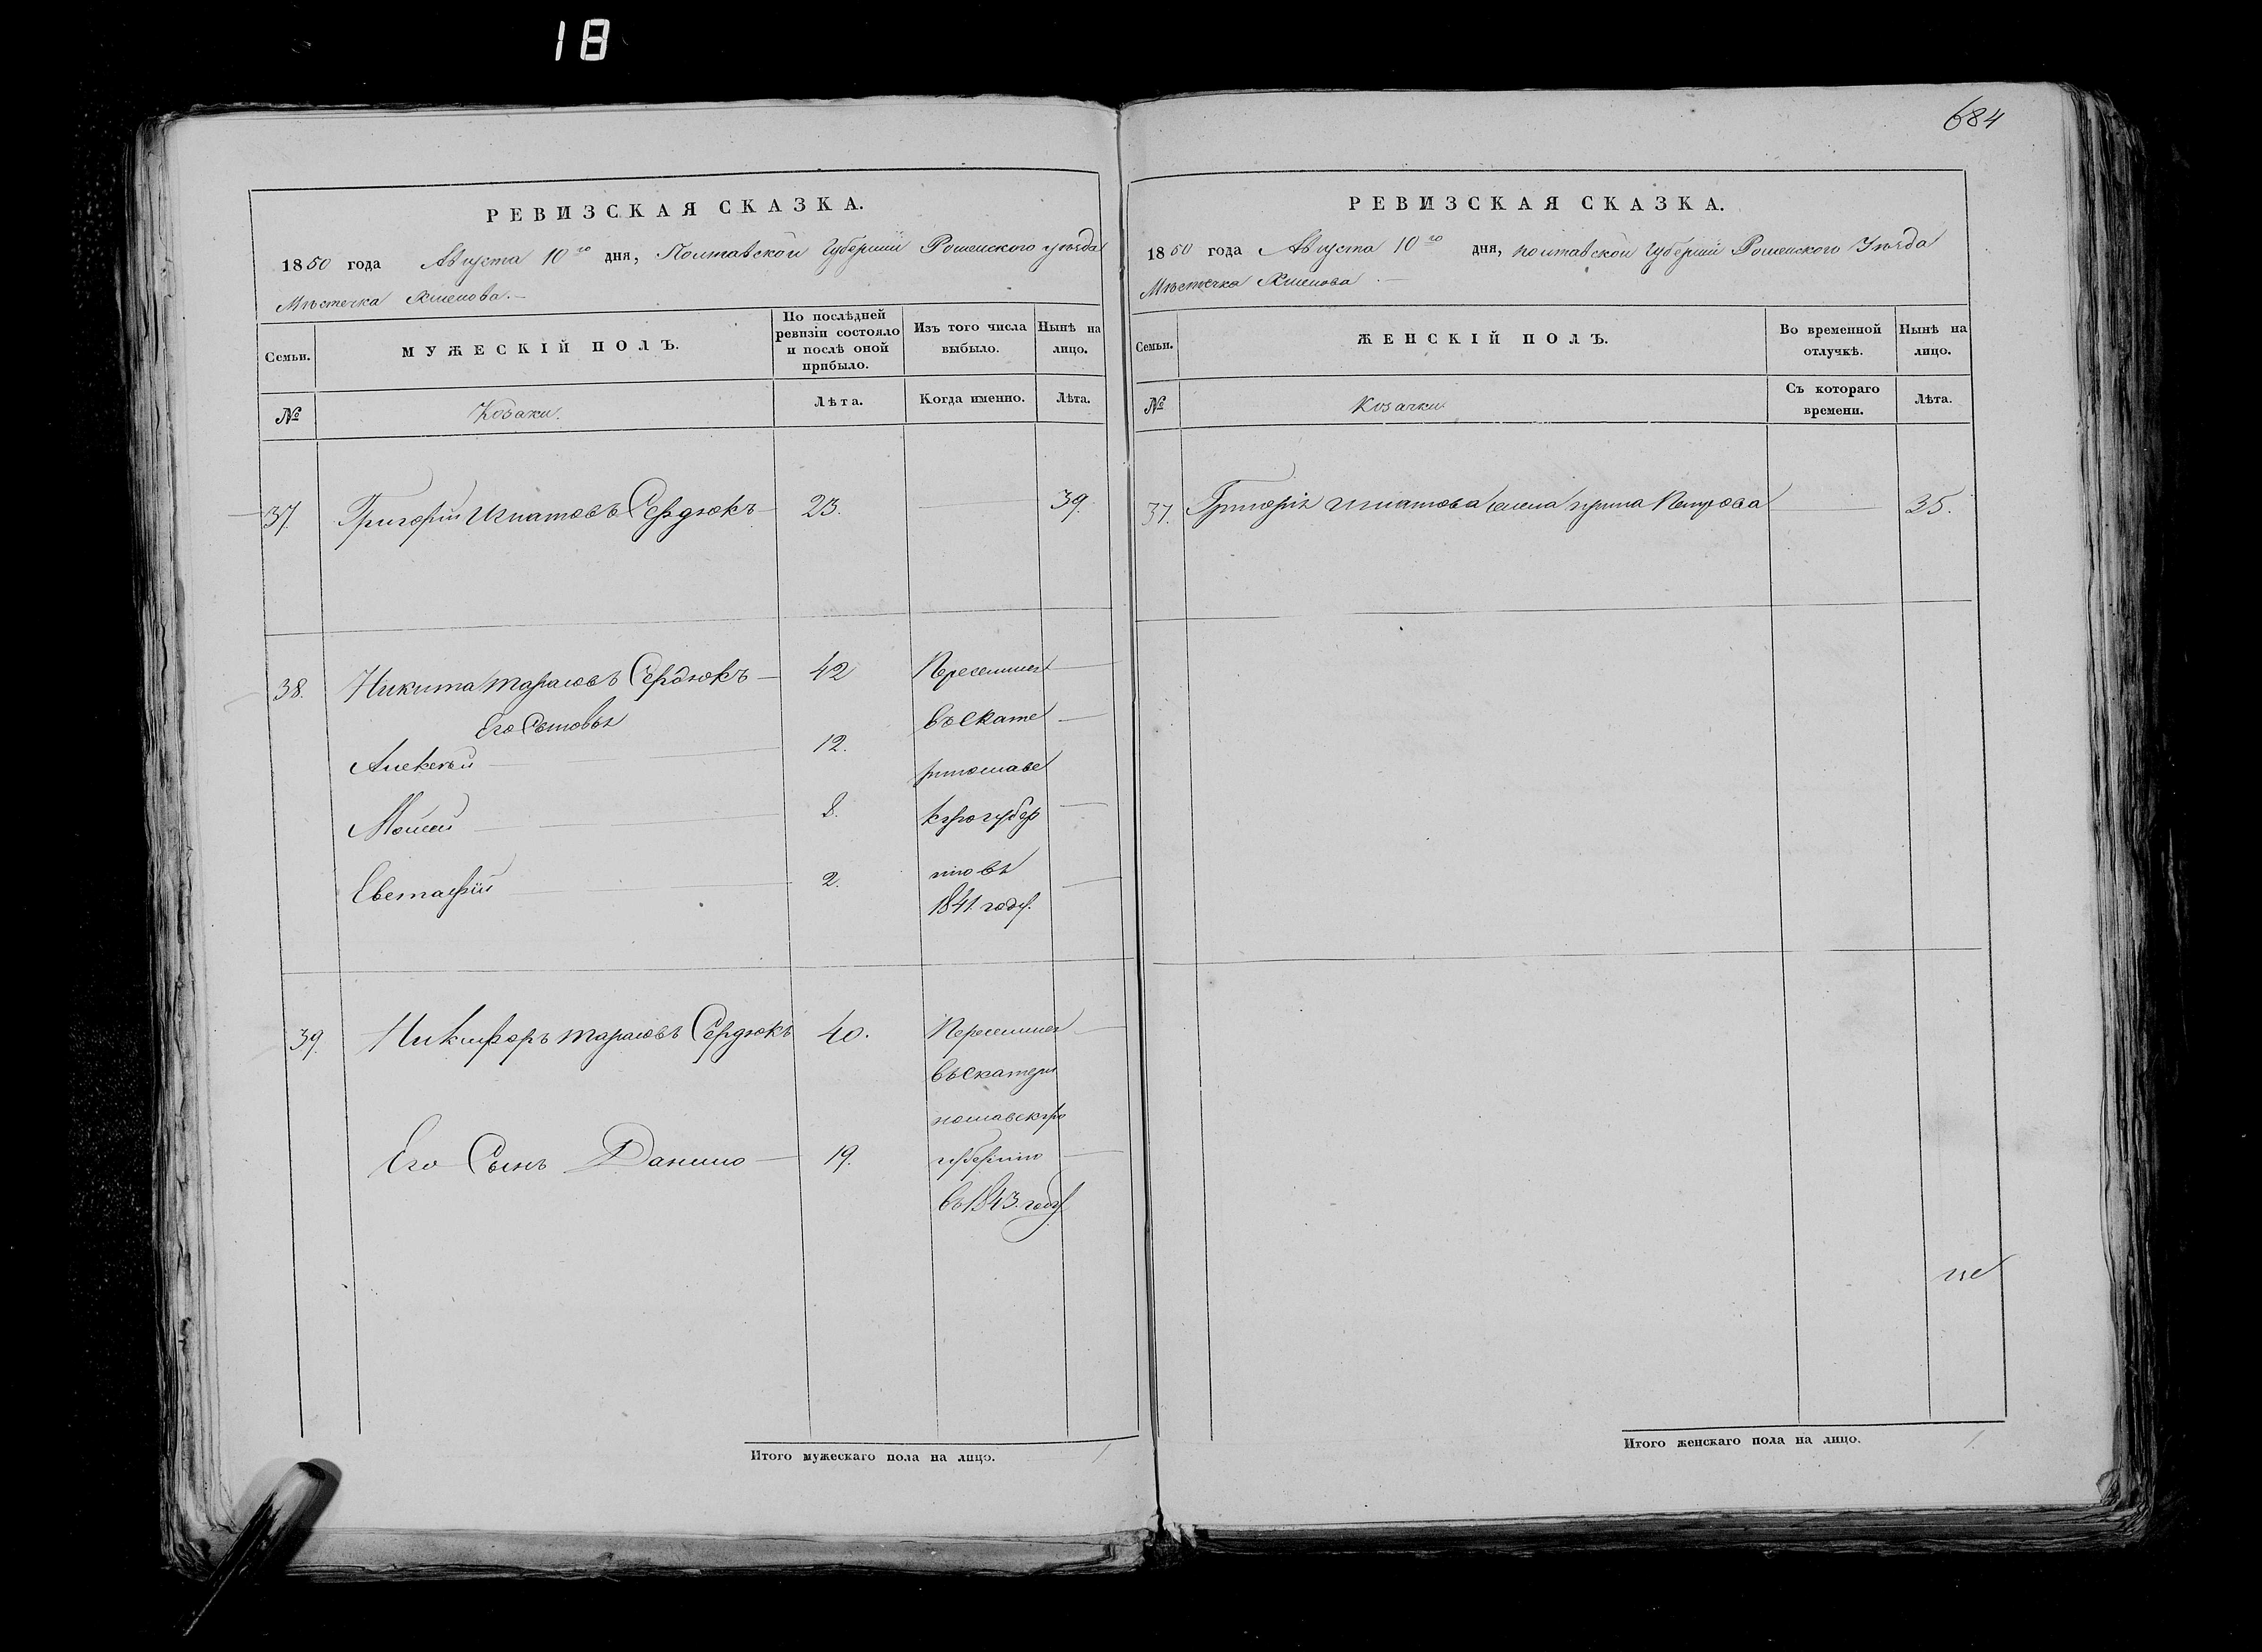 18
684
РЕВИЗСКАЯ СКАЗКА.
1850 года Августа 10го дня, Полтавской Губернии Роменского уезда
Местечка Хмелова.
Семьи.
МУЖЕСКІЙ ПОЛЪ.
По послѣдней ревизіи состояло и послѣ оной прибыло.
Изъ того числа выбыло.
Нынѣ на лицо.
№
Козаки.
Лѣта.
Когда именно.
Лѣта.
37. Григорій Игнатовъ Сердюкъ 23. 39.
38. Никита Тарасовъ Сердюкъ 42 Переселился
Его Сыновья
въ Екате
Алексѣй 12.
ринославс
Мойсей 8.
кую губер
Евстафій 2.
нію въ
1841 году.
39. Никифоръ Тарасовъ Сердюкъ 40. Переселился
въ Екатери
нославскую
Его Сынъ Данило 19. губернію
въ 1843 году
Итого мужескаго пола на лицо. 1
РЕВИЗСКАЯ СКАЗКА.
1850 года Августа 10го дня, полтавской Губерній Роменского Уезда
Местечка Хмелова
Семьи.
ЖЕНСКІЙ ПОЛЪ.
Во временной отлучкѣ.
Нынѣ на лицо.
№
Козачки
Съ котораго времени.
Лѣта.
37. Григорія Игнатова жена Ирина Петрова 35.
Итого женскаго пола на лицо. 1.